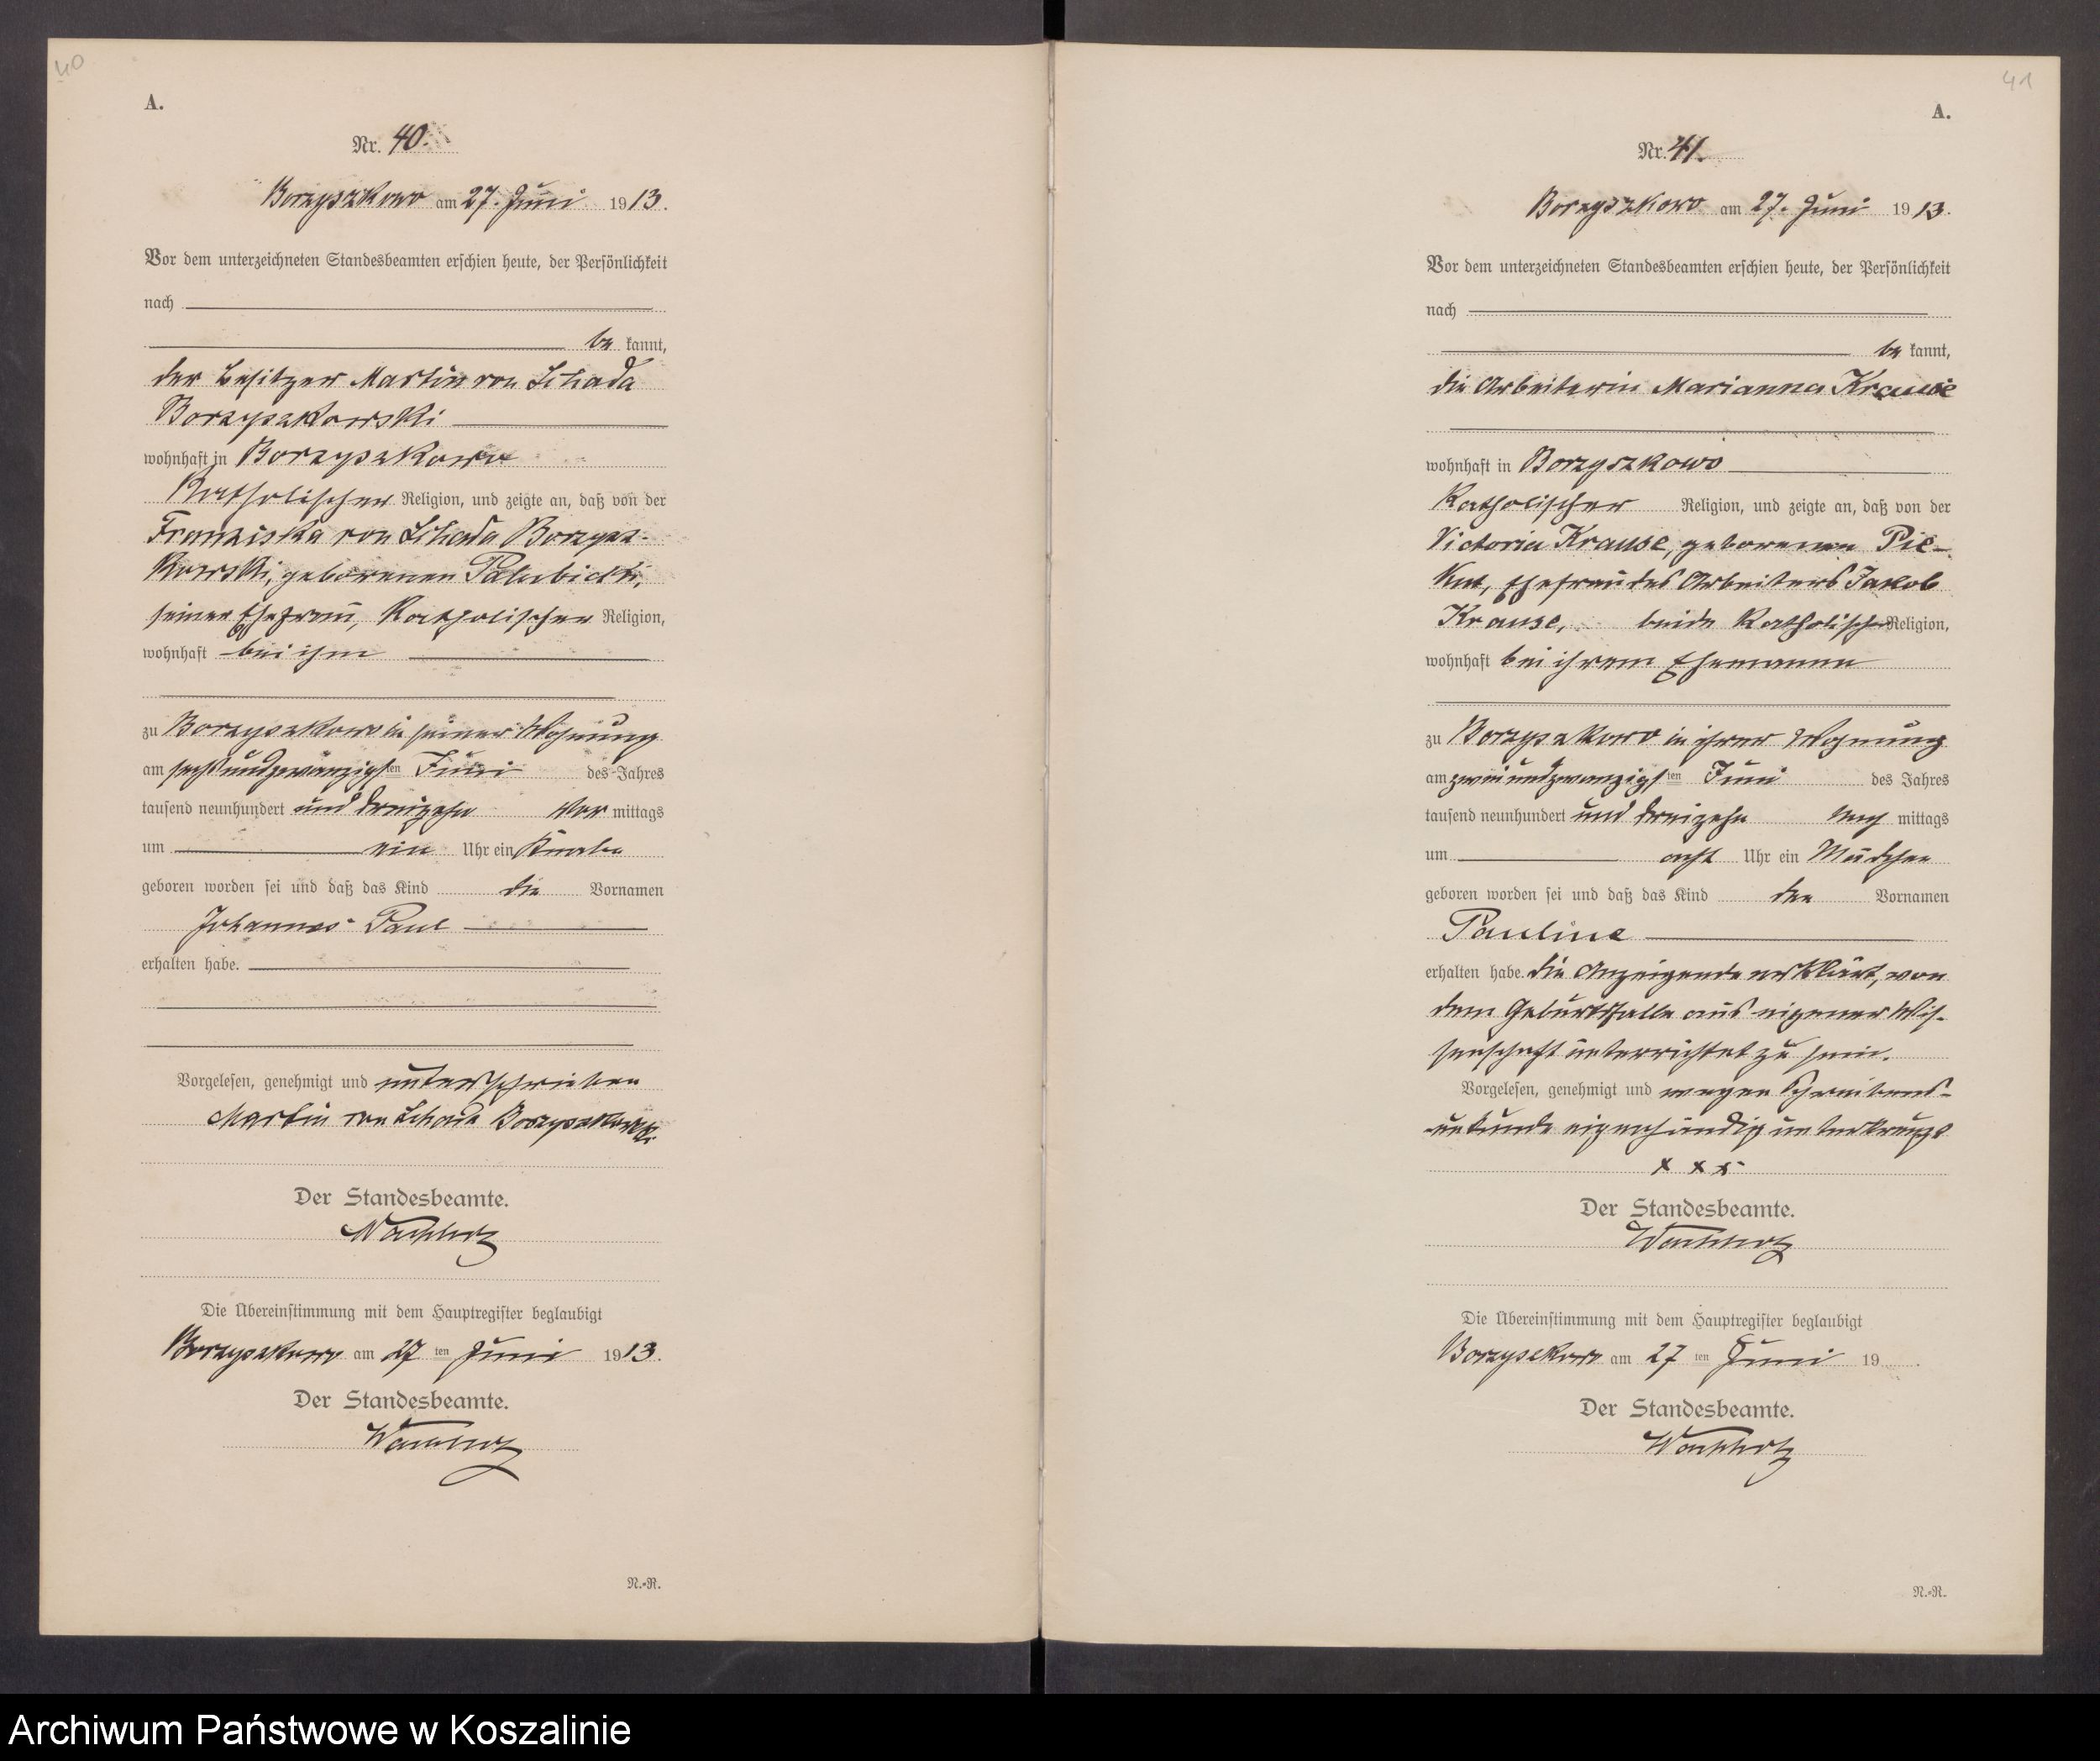 40
A.
Nr. 40.
Borzyszkowo am 27. Juni 1913.
Vor dem unterzeichneten Standesbeamten erschien heute, der Persönlichkeit
nach
be kannt,
der Besitzer Martin von Schada
Borzyszkowski
wohnhaft in Borzyszkowo
Katholischer Religion, und zeigte an, daß von der
Franziska von Schada Borzysz-
kowski, geborenen Palubicki,
seiner Ehefrau, Katholischer Religion,
wohnhaft bei ihm
zu Borzyszkowo in seiner Wohnung
am sechsundzwanzigsten Juni des Jahres
tausend neunhundert und dreizehn Vor mittags
um ein Uhr ein Knabe
geboren worden sei und daß das Kind die Vornamen
Johannes Paul
erhalten habe.
Vorgelesen, genehmigt und unterschrieben
Martin von Schada Borzyszkowski
Der Standesbeamte.
Wachholz
Die Übereinstimmung mit dem Hauptregister beglaubigt
Borzyszkowo am 27 ten Juni 1913.
Der Standesbeamte.
Wachholz
N.-R.
41
A.
Nr. 41.
Borzyszkowo am 27. Juni 1913.
Vor dem unterzeichneten Standesbeamten erschien heute, der Persönlichkeit
nach
be kannt,
die Arbeiterin Marianna Krause
wohnhaft in Borzyszkowo
Katholischer Religion, und zeigte an, daß von der
Victoria Krause, geborenen Pie-
, Ehefrau des Arbeiters Jakob
Krause, beide Katholischer Religion,
wohnhaft bei ihrem Ehemanne
zu Borzyszkowo in ihrer Wohnung
am zweiundzwanzigsten Juni des Jahres
tausend neunhundert und dreizehn Nach mittags
um acht Uhr ein Mädchen
geboren worden sei und daß das Kind den Vornamen
Pauline
erhalten habe. Die Anzeigende erklärt, von
dem Geburtsfalle aus eigener Wis-
senschaft unterrichtet zu sein.
Vorgelesen, genehmigt und wegen Schreibens-
unkunde eigenhändig unterkreuzt
x x x
Der Standesbeamte.
Wachholz
Die Übereinstimmung mit dem Hauptregister beglaubigt
Borzyszkowo am 27 ten Juni 19 .
Der Standesbeamte.
Wachholz
N.-R.
Archiwum Państwowe w Koszalinie